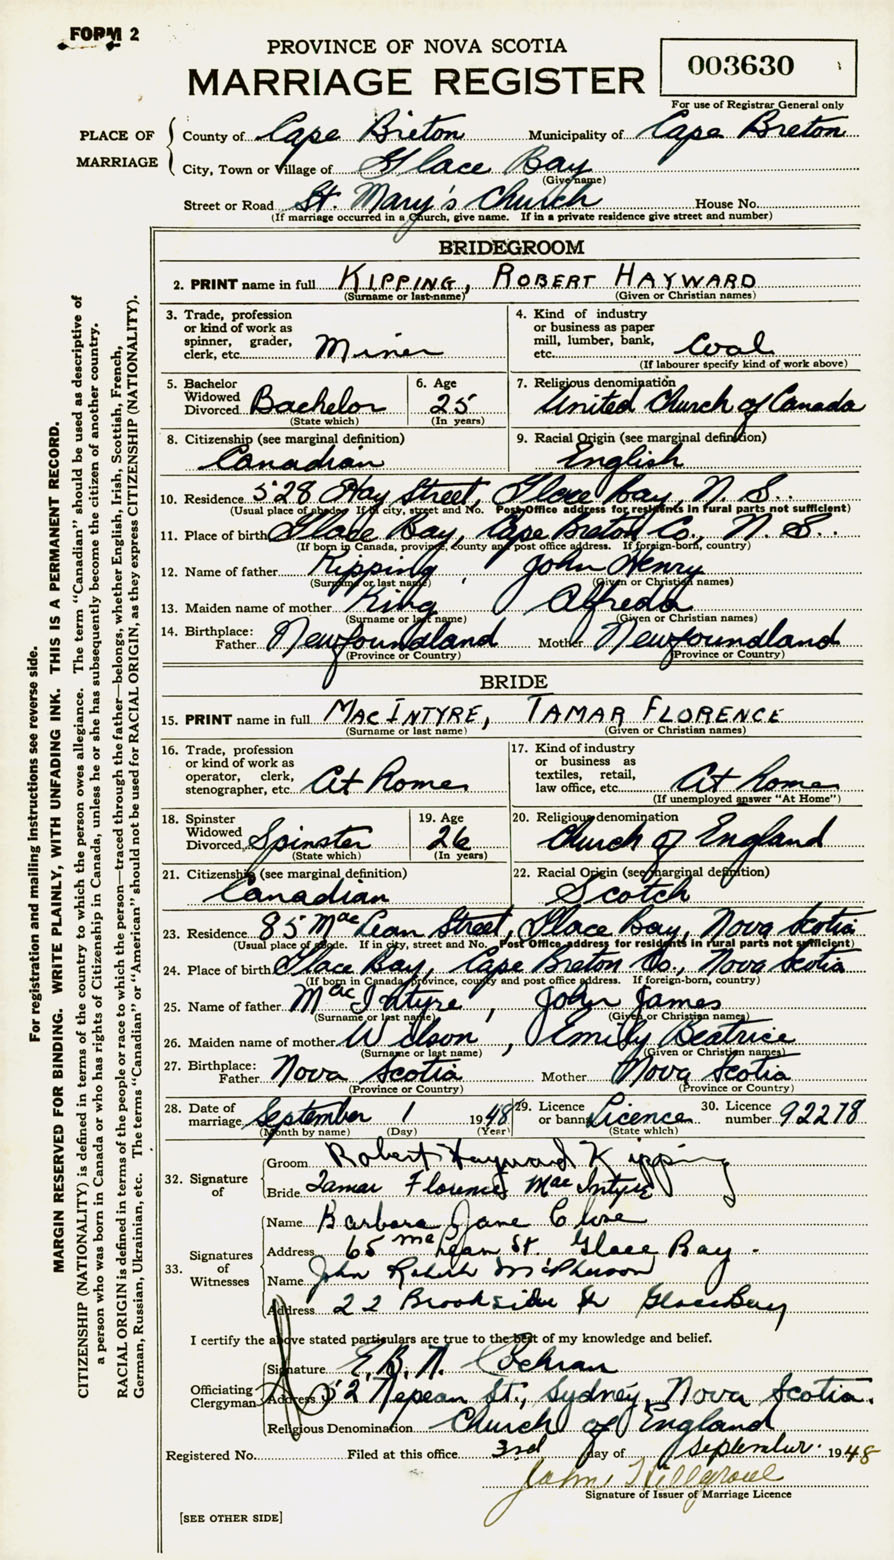 FORM 2
PROVINCE OF NOVA SCOTIA
MARRIAGE REGISTER
003630
For use of Registrar General only
PLACE OF MARRIAGE
County of Cape Breton Municipality of Cape Breton
City, Town or Village of Glace Bay
(Give name)
Street or Road St. Mary's Church House No.
(If marriage occurred in a Church, give name. If in a private residence give street and number)
BRIDEGROOM
2. PRINT name in full KIPPING, ROBERT HAYWARD
(Surname or last name) (Given or Christian names)
3. Trade, profession or kind of work as spinner, grader, clerk, etc. Miner
4. Kind of industry or business as paper mill, lumber, bank, etc. Coal
(If labourer specify kind of work above)
5. Bachelor Widowed Divorced Bachelor
(State which)
6. Age 25
(In years)
7. Religious denomination United Church of Canada
8. Citizenship (see marginal definition) Canadian
9. Racial Origin (see marginal definition) English
10. Residence 528 Hay Street, Glace Bay, N. S.
(Usual place of abode. If in city, street and No. Post Office address for residents in rural parts not sufficient)
11. Place of birth Glace Bay, Cape Breton Co., N. S.
(If born in Canada, province, county and post office address. If foreign-born, country)
12. Name of father Kipping, John Henry
(Surname or last name) (Given or Christian names)
13. Maiden name of mother King, Alfreda
(Surname or last name) (Given or Christian names)
14. Birthplace: Father Newfoundland Mother Newfoundland
(Province or Country) (Province or Country)
BRIDE
15. PRINT name in full MACINTYRE, TAMAR FLORENCE
(Surname or last name) (Given or Christian names)
16. Trade, profession or kind of work as operator, clerk, stenographer, etc. At Home
17. Kind of industry or business as textiles, retail, law office, etc. At Home
(If unemployed answer "At Home")
18. Spinster Widowed Divorced Spinster
(State which)
19. Age 26
(In years)
20. Religious denomination Church of England
21. Citizenship (see marginal definition) Canadian
22. Racial Origin (see marginal definition) Scotch
23. Residence 85 MacLean Street, Glace Bay, Nova Scotia
(Usual place of abode. If in city, street and No. Post Office address for residents in rural parts not sufficient)
24. Place of birth Glace Bay, Cape Breton Co., Nova Scotia
(If born in Canada, province, county and post office address. If foreign-born, country)
25. Name of father MacIntyre, John James
(Surname or last name) (Given or Christian names)
26. Maiden name of mother Wilson, Emily Beatrice
(Surname or last name) (Given or Christian names)
27. Birthplace: Father Nova Scotia Mother Nova Scotia
(Province or Country) (Province or Country)
28. Date of marriage September 1 1948
(Month by name) (Day) (Year)
29. Licence or banns Licence
(State which)
30. Licence number 92278
32. Signature of
Groom Robert Hayward Kipping
Bride Tamar Florence MacIntyre
33. Signatures of Witnesses
Name Barbara Jane
Address 65 McLean St. Glace Bay.
Name John Robert McPherson
Address 22 Brookside St Glace Bay
I certify the above stated particulars are true to the best of my knowledge and belief.
Officiating Clergyman
Signature E. B. N. Cochran
Address 52 Nepean St., Sydney, Nova Scotia.
Religious Denomination Church of England
Registered No. Filed at this office 3rd day of September 1948
John
Signature of Issuer of Marriage Licence
[SEE OTHER SIDE]
For registration and mailing instructions see reverse side.
MARGIN RESERVED FOR BINDING. WRITE PLAINLY, WITH UNFADING INK. THIS IS A PERMANENT RECORD.
CITIZENSHIP (NATIONALITY) is defined in terms of the country to which the person owes allegiance. The term "Canadian" should be used as descriptive of
a person who was born in Canada or who has rights of Citizenship in Canada, unless he or she has subsequently become the citizen of another country.
RACIAL ORIGIN is defined in terms of the people or race to which the person—traced through the father—belongs, whether English, Irish, Scottish, French,
German, Russian, Ukrainian, etc. The terms "Canadian" or "American" should not be used for RACIAL ORIGIN, as they express CITIZENSHIP (NATIONALITY).